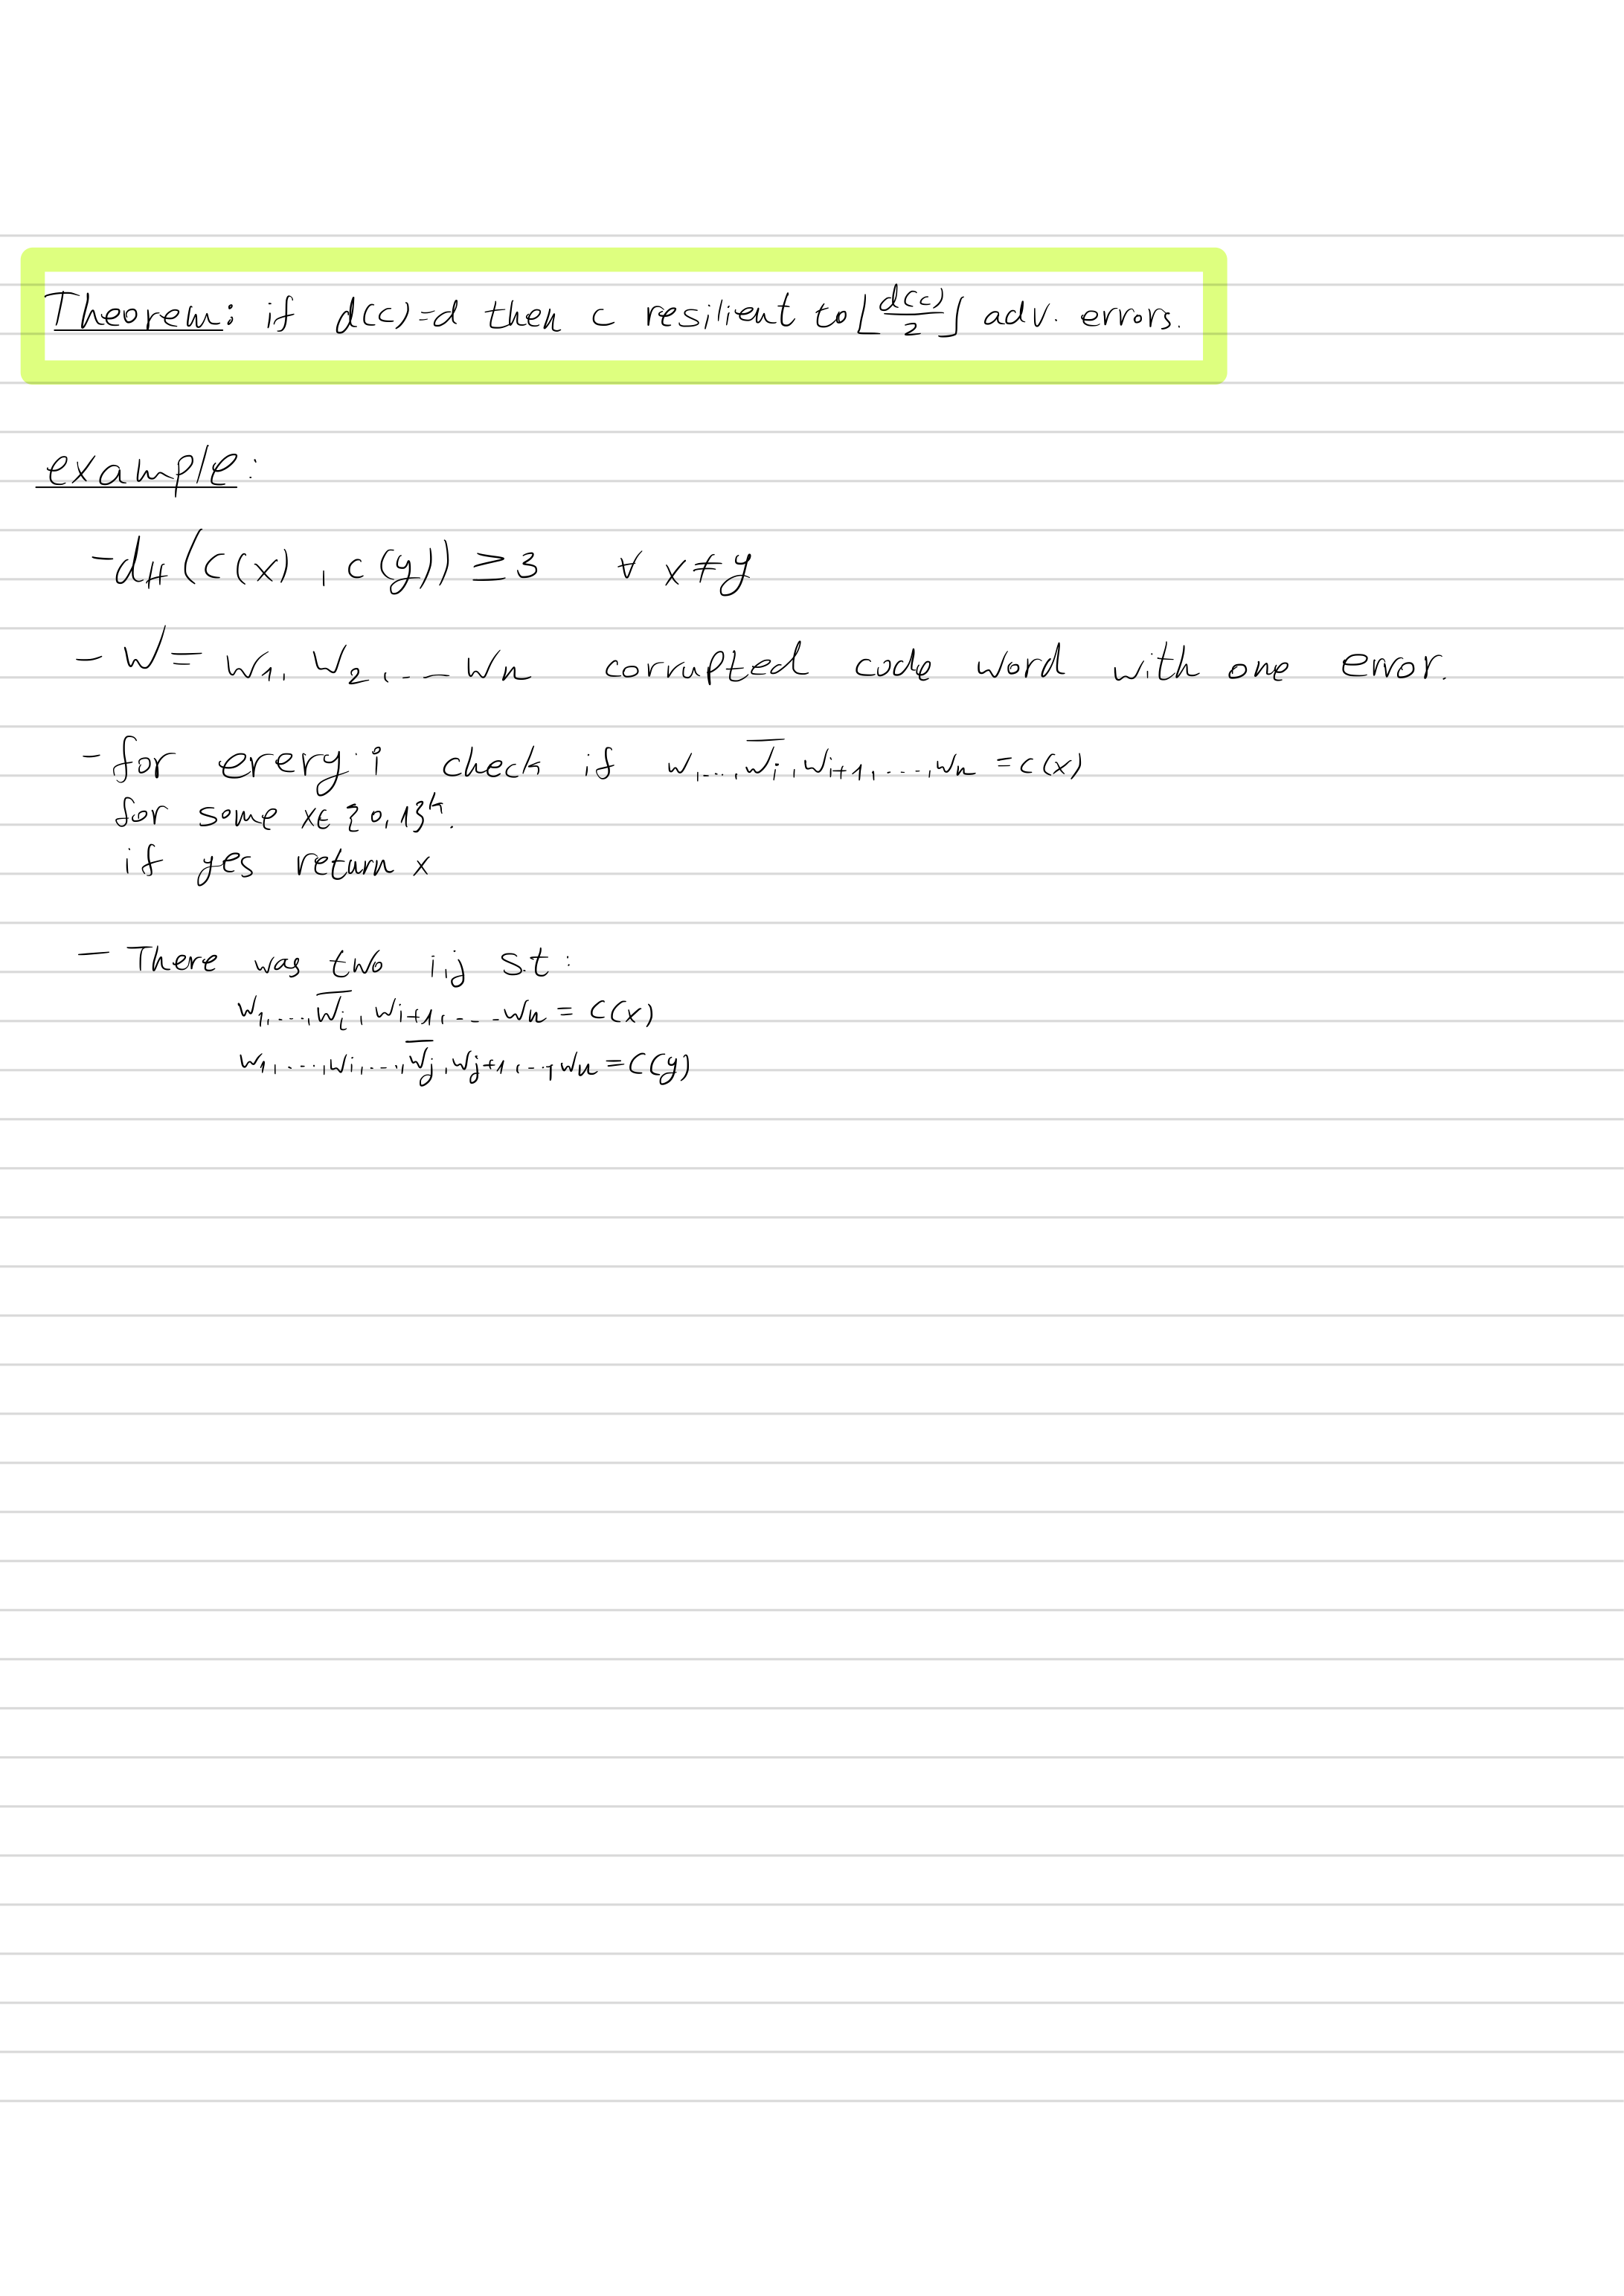 Theorem: if d(c)=d then c resilient to ⌊d(c)/2⌋ adv. errors.
example:
- d_H(c(x), c(y)) ≥3 ∀ x≠y
- W = w_1, w_2, ... w_n corrupted code word with one error.
- for every i check if w_1,...,w̅_i, w_{i+1},...,w_n = c(x)
for some x∈{0,1}^k.
if yes return x
- There was two i,j s.t:
w_1,...,w̅_i, w_{i+1},...w_n = c(x)
w_1,...,w_i,...,w̅_j, w_{j+1},...,w_n = c(y)